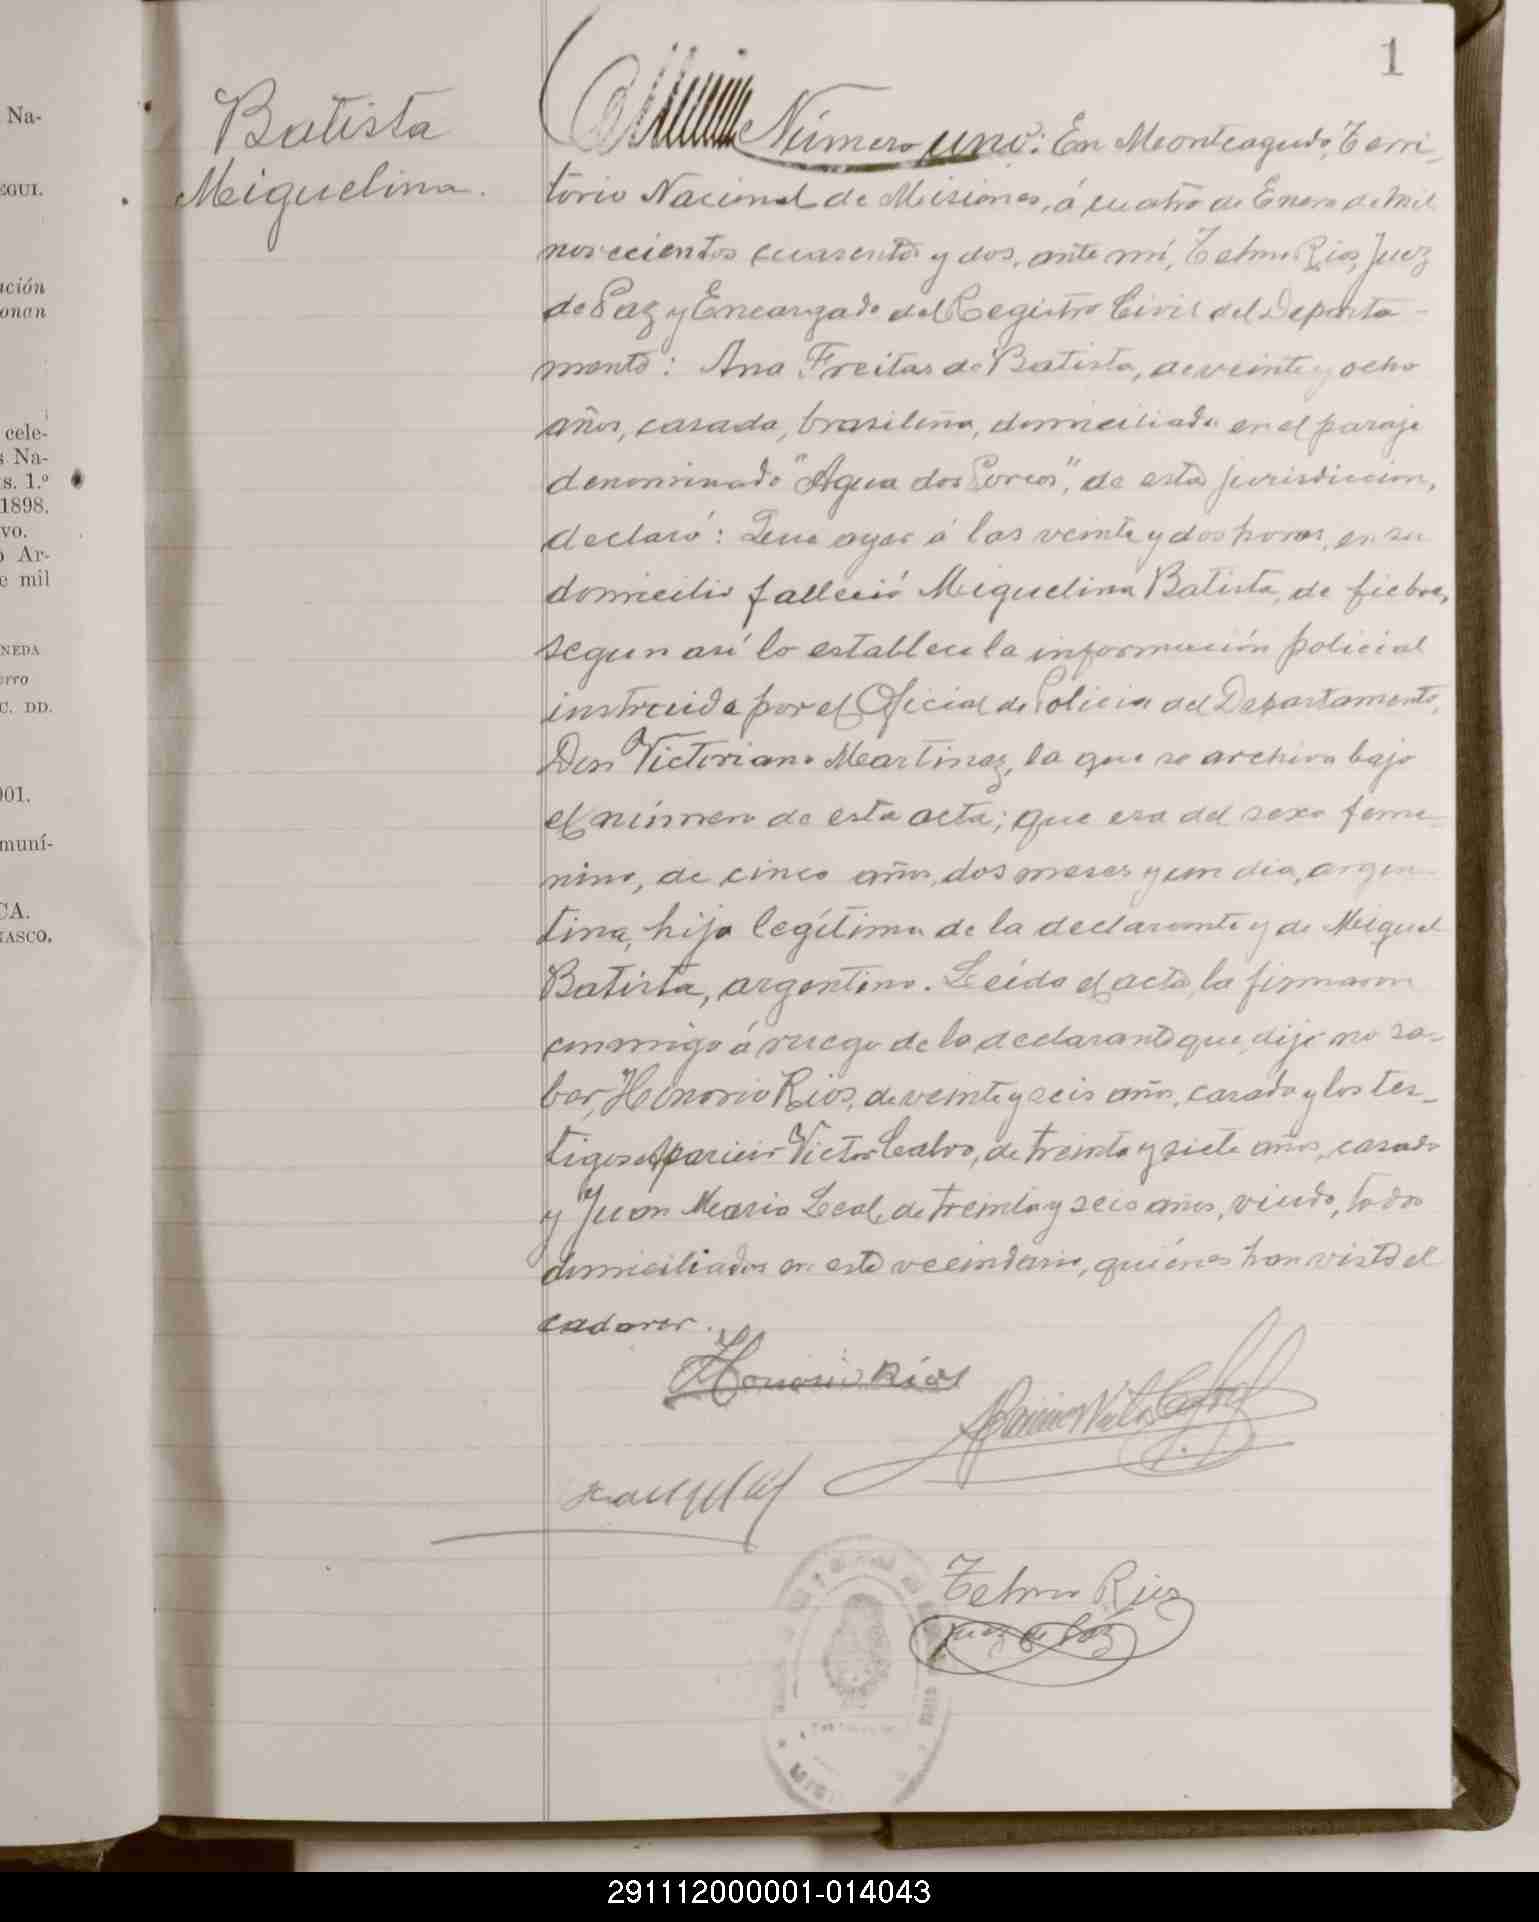 1
Na-
EGUI.
ación
onan
cele-
s Na-
s. 1.º
1898.
vo.
o Ar-
e mil
NEDA
erro
C. DD.
001.
muní-
CA.
NASCO.
Batista
Miguelina.
Número uno: En Monteagudo, Terri-
torio Nacional de Misiones, á cuatro de Enero de mil
novecientos cuarenta y dos, ante mí, Telmo Rios, Juez
de Paz y Encargado del Registro Civil del Departa-
mento: Ana Freitas de Batista, de veinte y ocho
años, casada, brasileña, domiciliada en el paraje
denominado "Agua dos Porcos", de esta jurisdiccion,
declaró: Que ayer á las veinte y dos horas, en su
domicilio falleció Miguelina Batista, de fiebre,
segun así lo establece la información policial
instruida por el Oficial de Policia del Departamento,
Don Victoriano Martinez, la que se archiva bajo
el número de esta acta; que era del sexo feme-
nino, de cinco años, dos meses y un dia, argen-
tina, hija legítima de la declarante y de Miguel
Batista, argentino. Leída el acta, la firmaron
conmigo á ruego de la declarante que dijo no sa-
ber, Honorio Rios, de veinte y seis años, casado y los tes-
tigos Aparicio Victor Calvo, de treinta y siete años, casado
y Juan Maria Leal, de treinta y seis años, viudo, todos
domiciliados en este vecindario, quiénes han visto el
cadaver.
Honorio Ríos
Telmo Rios
Juez de Paz
291112000001-014043